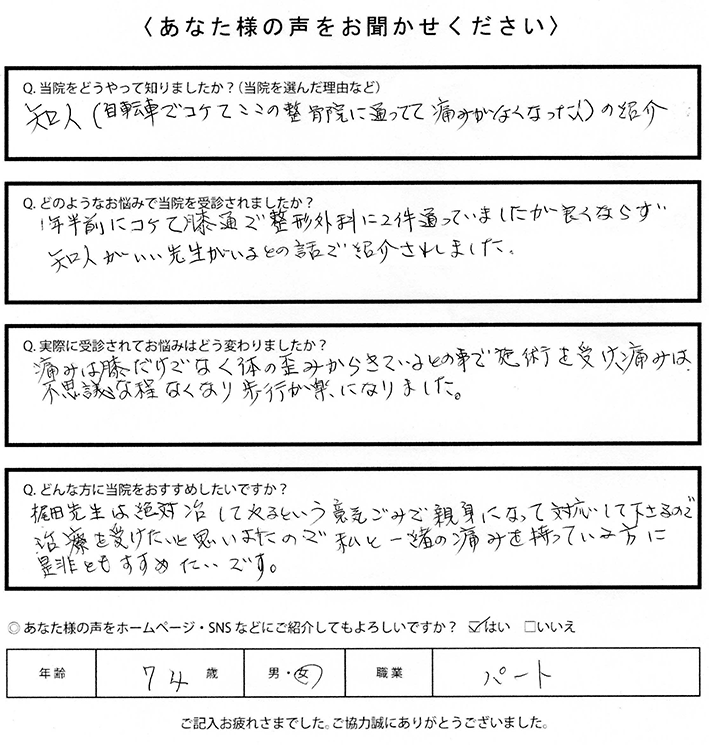 〈あなた様の声をお聞かせください〉
Q. 当院をどうやって知りましたか？(当院を選んだ理由など)
知人(自転車でコケてここの整骨院に通ってて痛みがなくなった人)の紹介
Q. どのようなお悩みで当院を受診されましたか？
1年半前にコケて膝通で整形外科に2件通っていましたが良くならず
知人がいい先生がいるとの話で紹介されました。
Q. 実際に受診されてお悩みはどう変わりましたか？
痛みは膝だけでなく体の歪みからきているとの事で施術を受け、痛みは
不思議な程なくなり歩行が楽になりました。
Q. どんな方に当院をおすすめしたいですか？
梶田先生は絶対治してやるという意気ごみで親身になって対応して下さるので
治療を受けたいと思いましたので私と一緒の痛みを持っている方に
是非ともすすめたいです。
◎あなた様の声をホームページ・SNSなどにご紹介してもよろしいですか？ ☑はい □いいえ
年齢 74歳 男・女 職業 パート
ご記入お疲れさまでした。ご協力誠にありがとうございました。